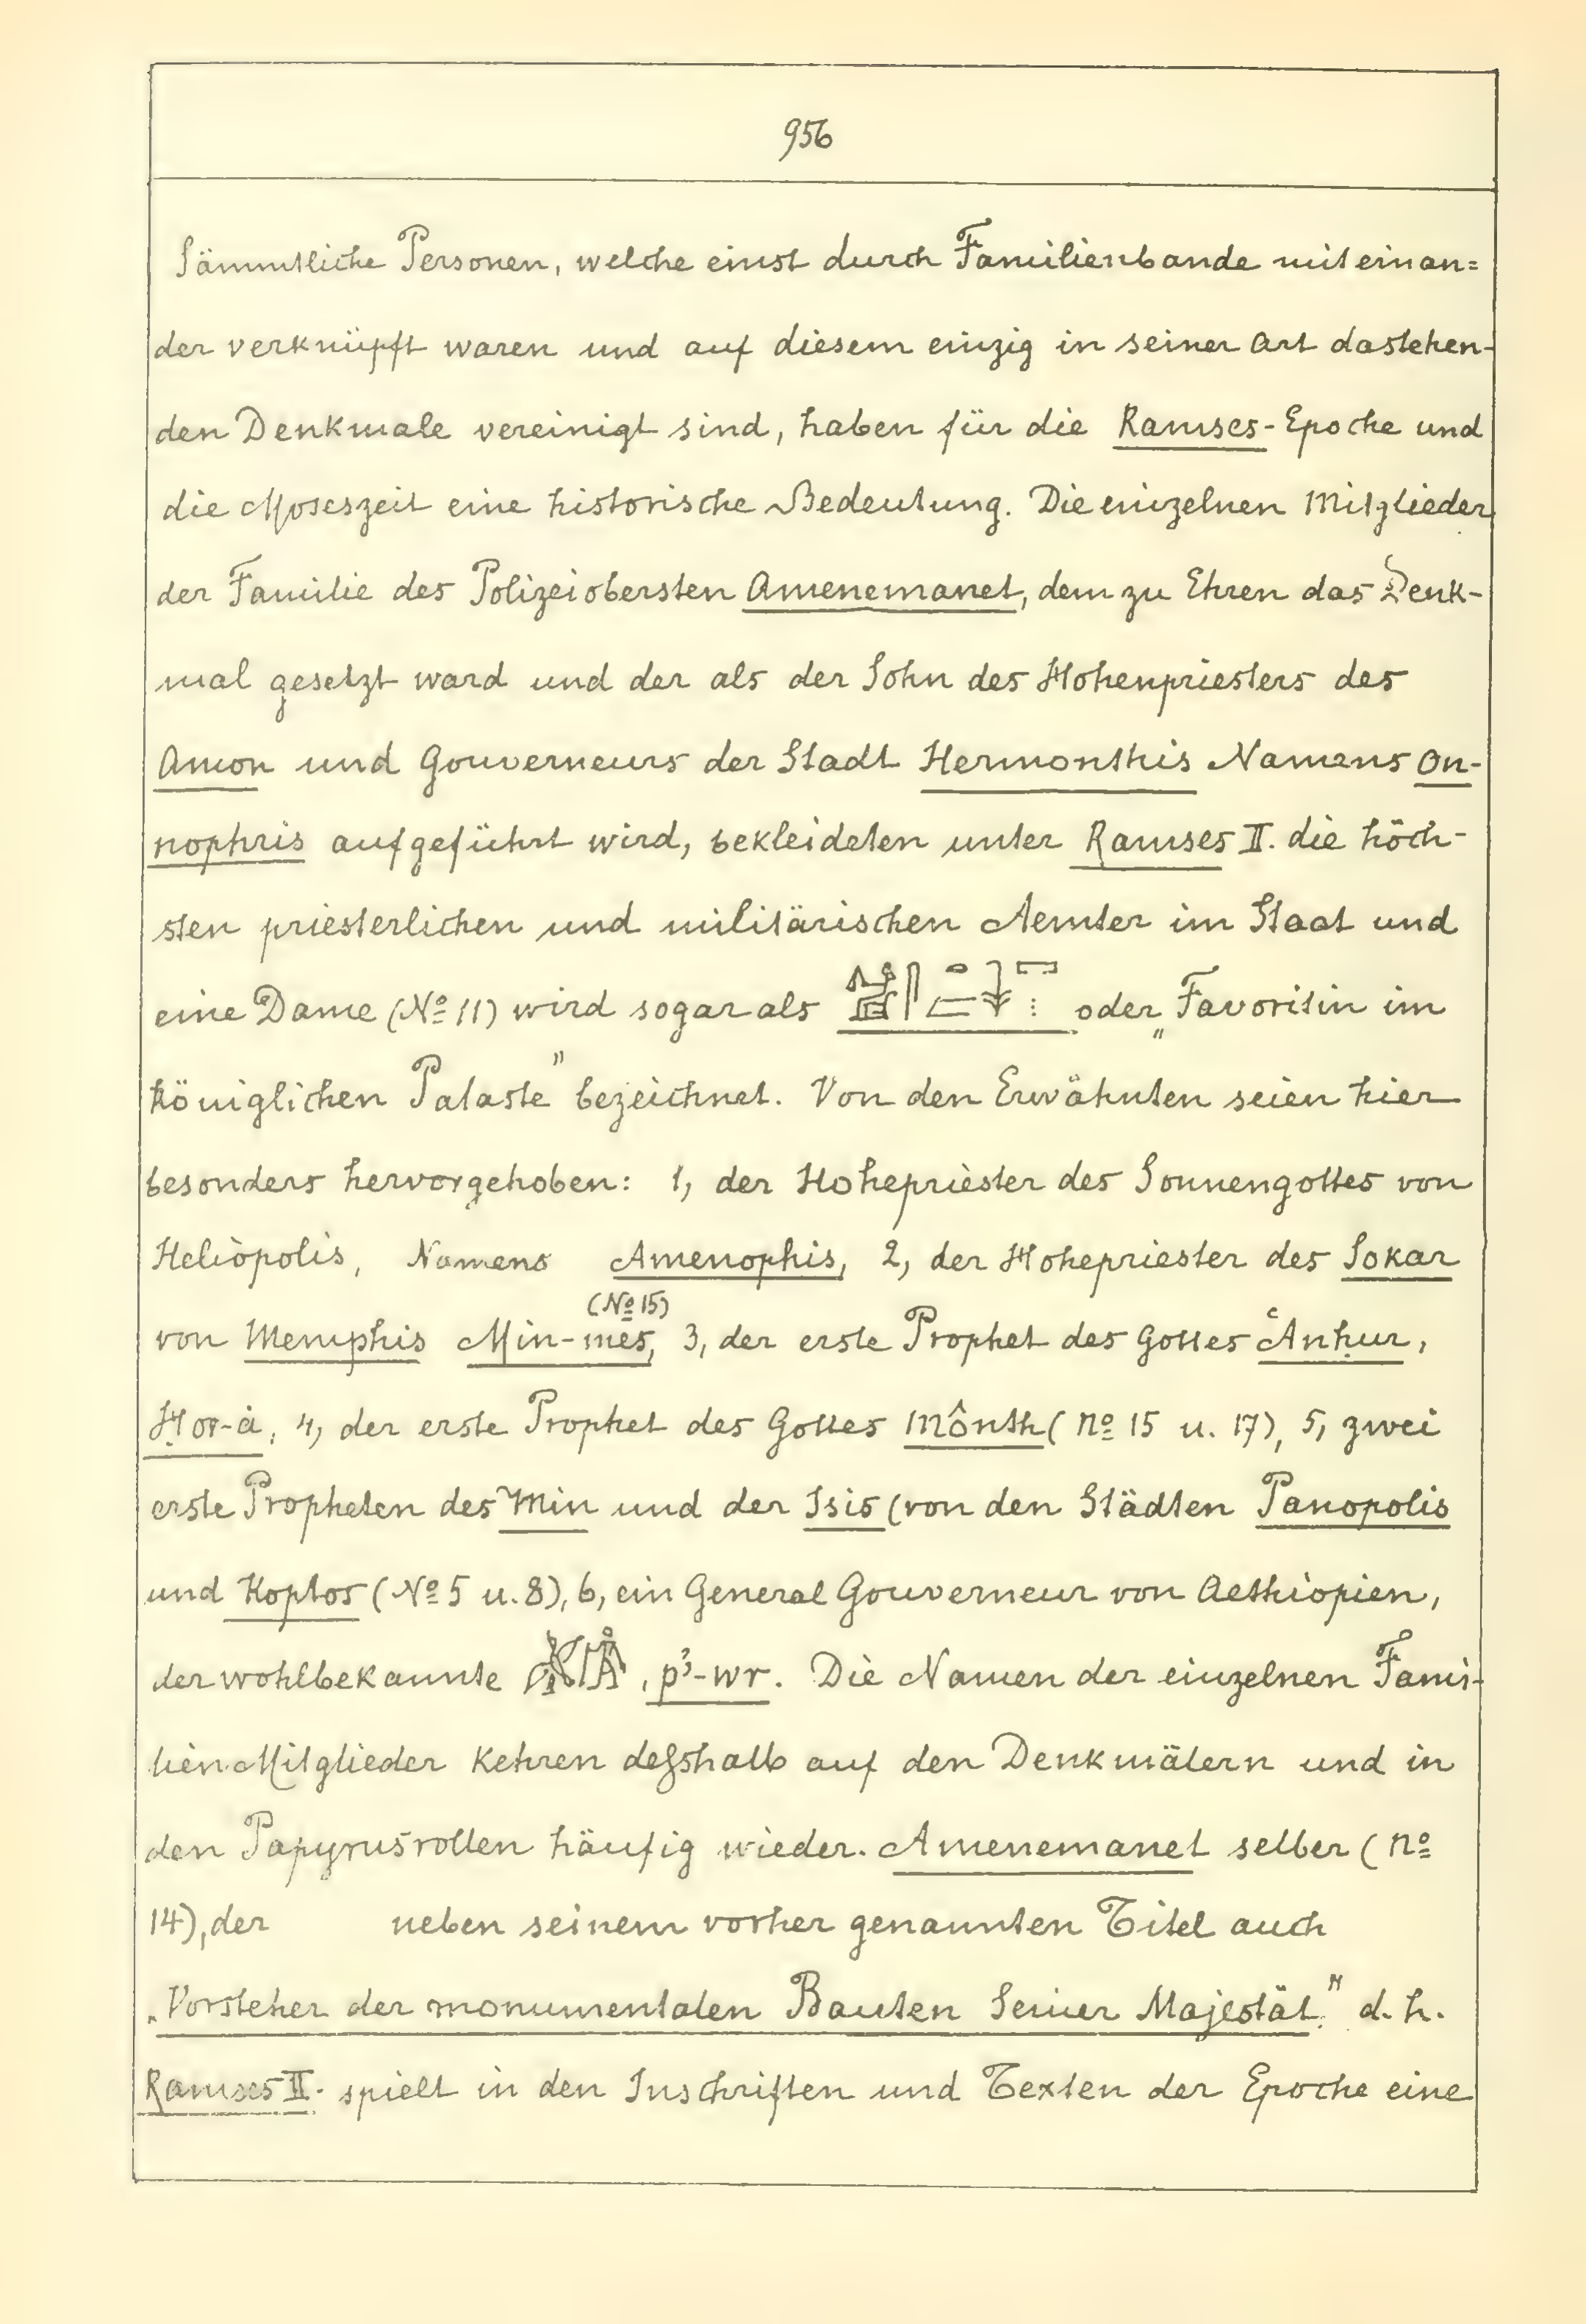 956
Sämmtliche Personen, welche einst durch Familienbande miteinan=
der verknüpft waren und auf diesem einzig in seiner Art dastehen-
den Denkmale vereinigt sind, haben für die Ramses-Epoche und
die Moseszeit eine historische Bedeutung. Die einzelnen Mitglieder
der Familie des Polizeiobersten Amenemanet, dem zu Ehren das Denk-
mal gesetzt ward und der als der Sohn des Hohenpriesters des
Amon und Gouverneurs der Stadt Hermonthis Namens On-
nophris aufgeführt wird, bekleideten unter Ramses II. die höch-
sten priesterlichen und militärischen Aemter im Staat und
eine Dame (No 11) wird sogar als oder „Favoritin im
königlichen Palaste" bezeichnet. Von den Erwähnten seien hier
besonders hervorgehoben: 1, der Hohepriester des Sonnengottes von
Heliopolis, Namens Amenophis, 2, der Hohepriester des Sokar
(No 15)
von Memphis Min-mes, 3, der erste Prophet des Gottes Anḥur,
Ḥor-à, 4, der erste Prophet des Gottes Mônth (No 15 u. 17), 5, zwei
erste Propheten des Min und der Isis (von den Städten Panopolis
und Koptos (No 5 u. 8), 6, ein General Gouverneur von Aethiopien,
der wohlbekannte , p3-wr. Die Namen der einzelnen Fami-
lien-Mitglieder kehren deßhalb auf den Denkmälern und in
den Papyrusrollen häufig wieder. Amenemanet selber (No
14), der neben seinem vorher genannten Titel auch
„Vorsteher der monumentalen Bauten Seiner Majestät" d. h.
Ramses II. spielt in den Inschriften und Texten der Epoche eine